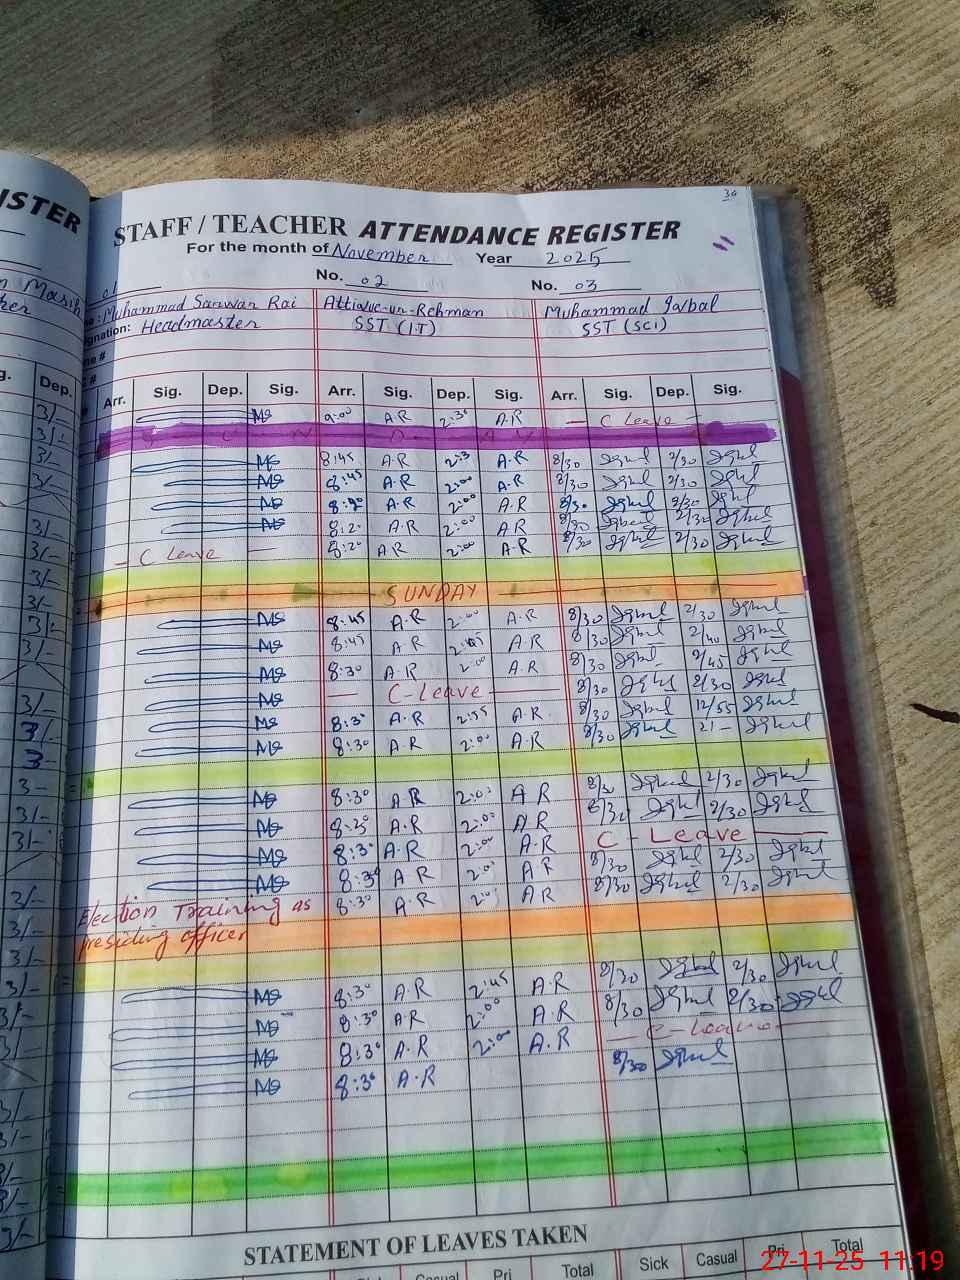 30
ISTER
STAFF / TEACHER ATTENDANCE REGISTER
For the month of November Year 2025
01 No. 02 No. 03
Muhammad Sarwar Rai Attique-ur-Rehman Muhammad Iqbal
gnation: Headmaster SST (I.T) SST (SCI)
me #
g. Dep. Arr. Sig. Dep. Sig. Arr. Sig. Dep. Sig. Arr. Sig. Dep. Sig.
MS 9:00 A.R 2:30 A.R — C Leave —
S U N D A Y
MS 8:45 A.R A.R 8/30 Iqbal 2/30 Iqbal
MS 8:45 A.R 2:00 A.R 8/30 Iqbal 2/30 Iqbal
MS A.R 2:00 A.R 8/30 Iqbal 2/30 Iqbal
MS 8:20 A.R 2:00 A.R 8/30 Iqbal 2/30 Iqbal
— C Leave — 8:20 A.R 2:00 A.R 8/30 Iqbal 2/30 Iqbal
SUNDAY
MS 8:45 A.R 2:00 A.R 8/30 Iqbal 2/30 Iqbal
MS 8:45 A R A R 8/30 Iqbal 2/40 Iqbal
MS 8:30 A.R 2:00 A.R 8/30 Iqbal 2/45 Iqbal
MS — C-Leave — 8/30 Iqbal 2/30 Iqbal
MS 8:30 A.R A.R. 8/30 Iqbal 12/55 Iqbal
MS 8:30 A.R 2:00 A.R 8/30 Iqbal 2/- Iqbal
MS 8:30 A R 2:00 A R 8/30 Iqbal 2/30 Iqbal
MS A.R 2:00 A R 8/30 Iqbal 2/30 Iqbal
MS 8:30 A R 2:00 A.R C - Leave —
MS 8:30 A R 2:00 A R 8/30 Iqbal 2/30 Iqbal
Election Training as 8:30 A R 2:00 A R 8/30 Iqbal 2/30 Iqbal
presiding officer
MS 8:30 A.R 2:45 A R 8/30 Iqbal 2/30 Iqbal
MS 8:30 A.R 2:00 A.R 8/30 Iqbal 2/30 Iqbal
MS 8:30 A.R 2:00 A.R — C-Leave —
MS 8:30 A.R 8/30 Iqbal
STATEMENT OF LEAVES TAKEN
Sick Casual Pri Total Sick Casual Pri Total
27-11-25 11:19